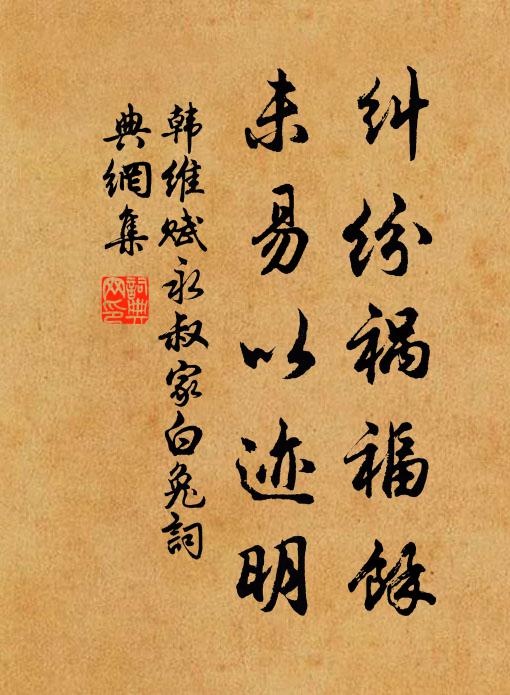 纠纷祸福馀
未易以迹明
韩维赋永叔家白兔詞
典網集
詞典网印